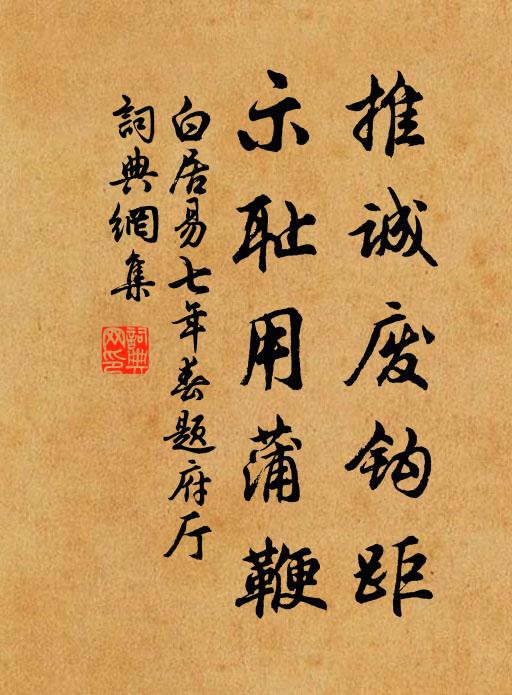 推誠废钩距
示耻用蒲鞭
白居易七年春题府厅
詞典網集
詞典網印